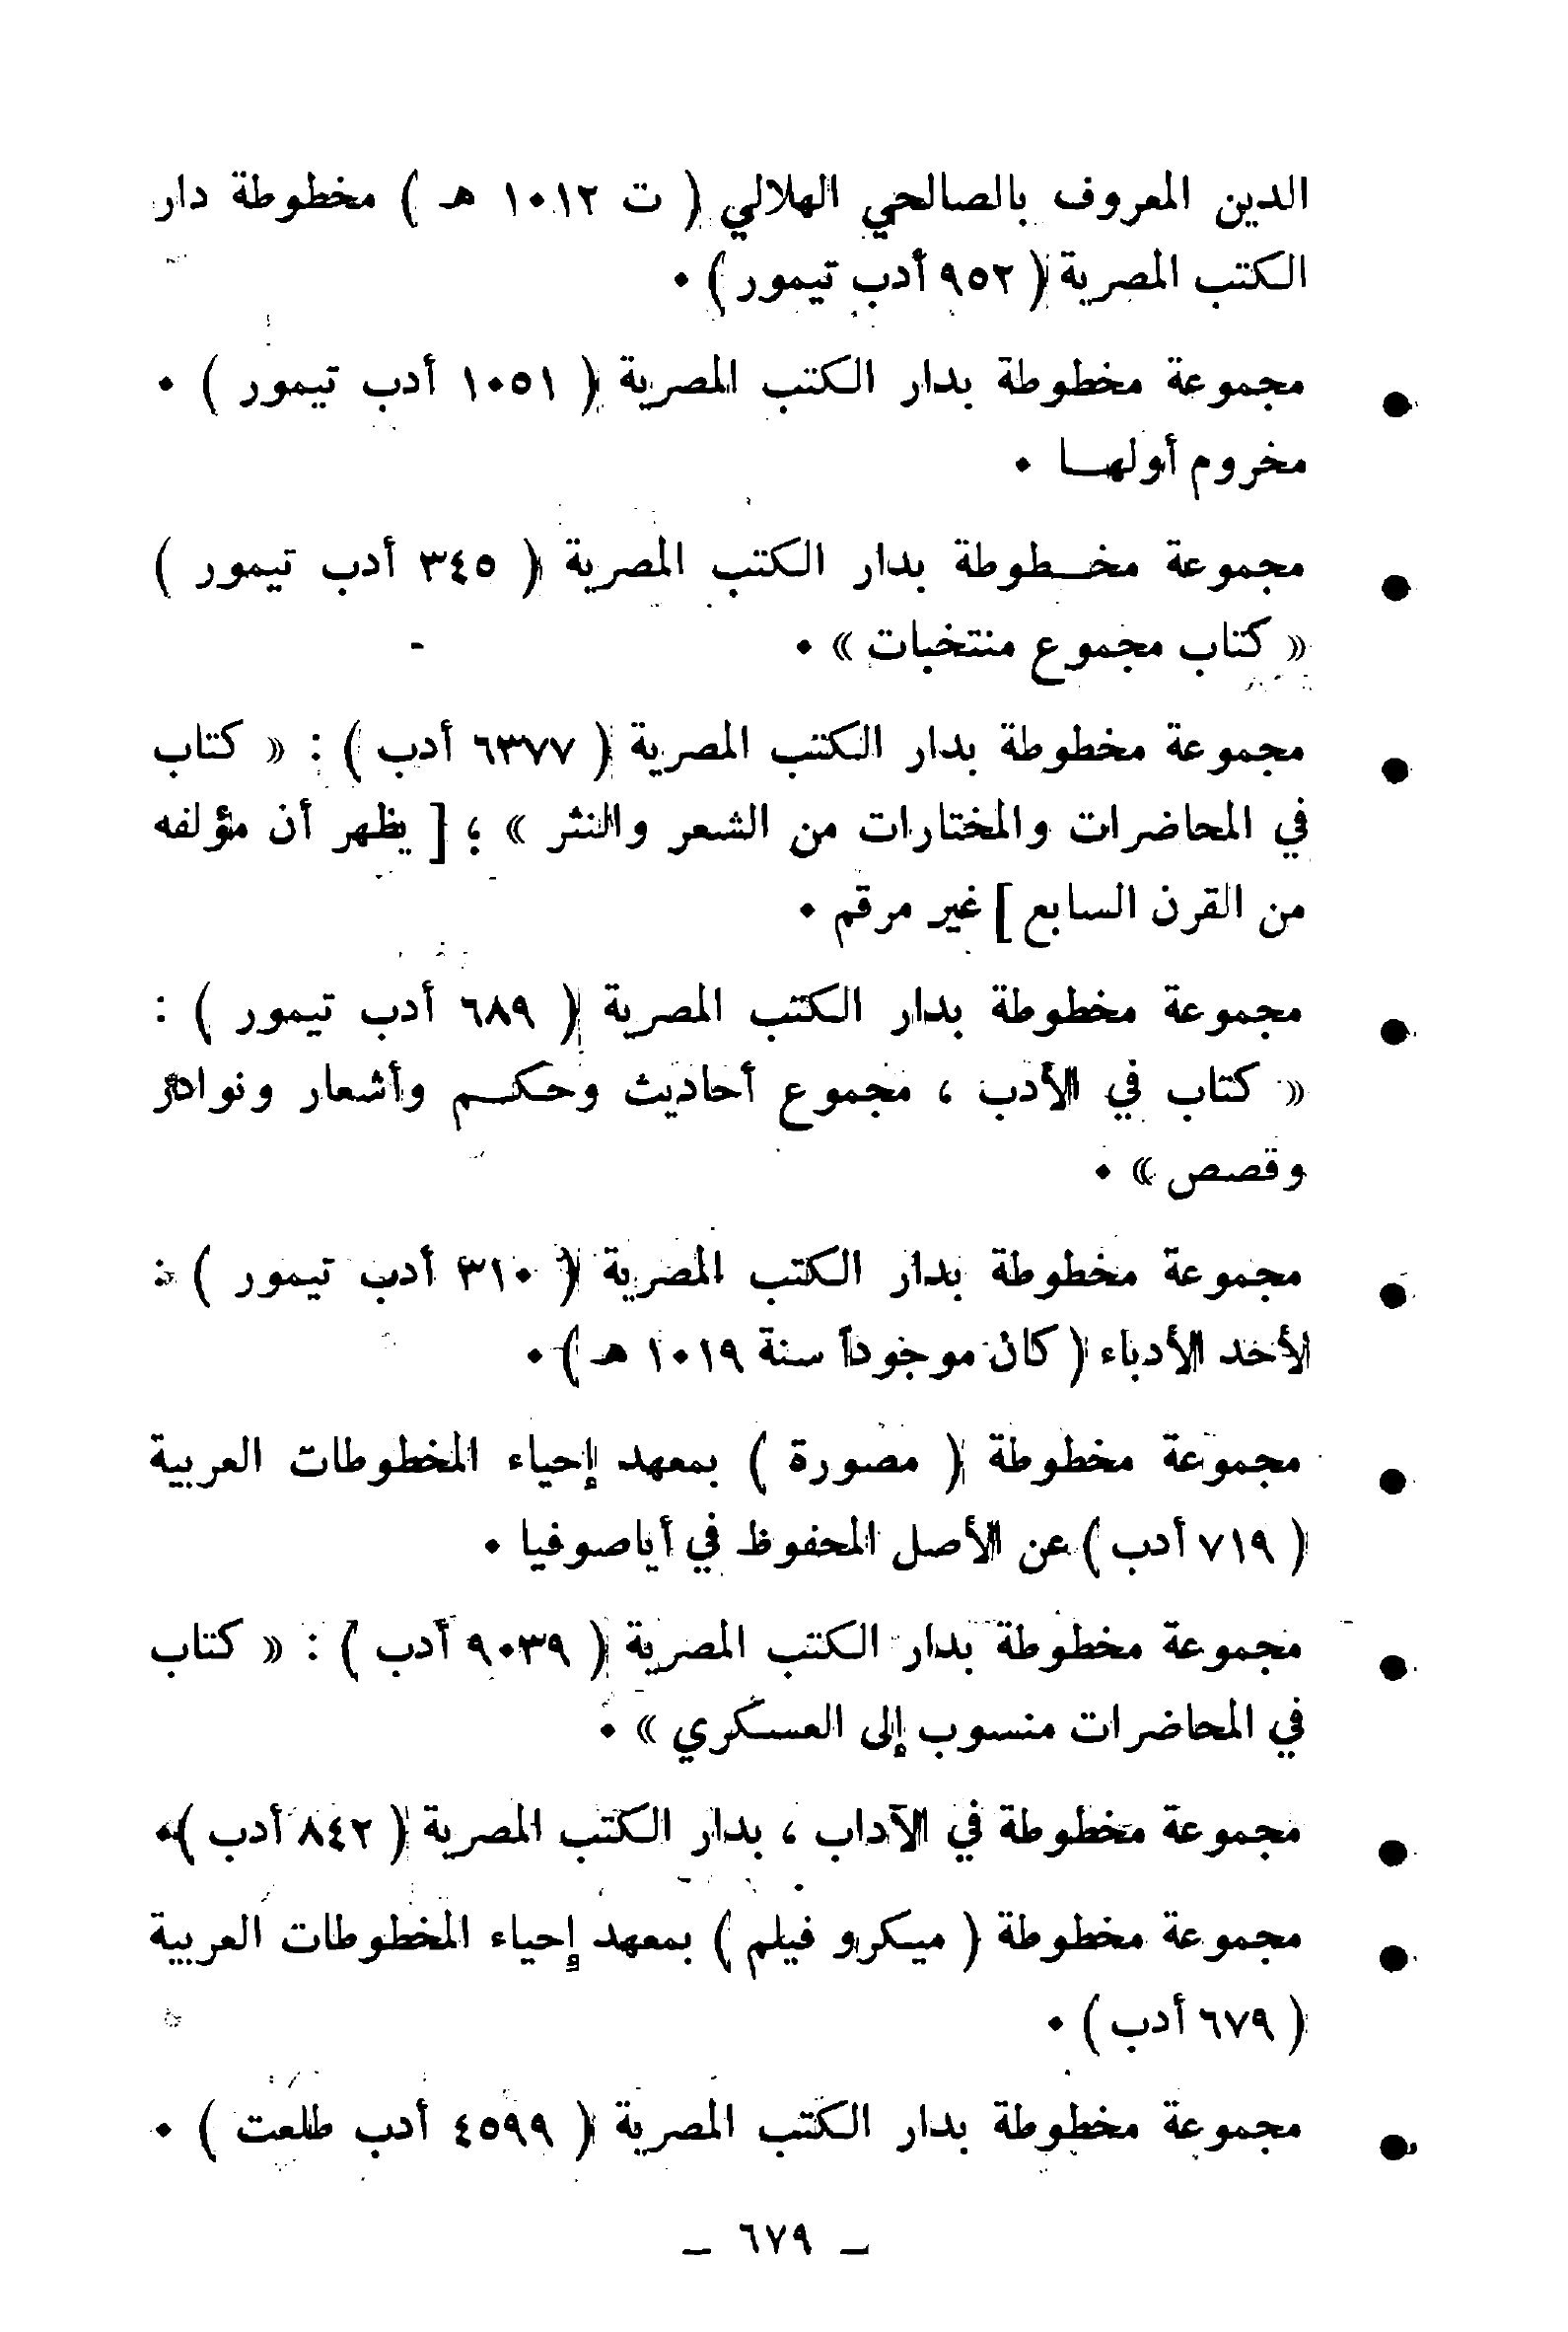 الدين المعروف بالصالحي الهلالي ( ت ١٠١٢ هـ ) مخطوطة دار
الكتب المصرية ( ٩٥٢ أدب تيمور ) ٠
● مجموعة مخطوطة بدار الكتب المصرية ( ١٠٥١ أدب تيمور ) ٠
مخروم أولهــا ٠
● مجموعة مخــطوطة بدار الكتب المصرية ( ٣٤٥ أدب تيمور )
« كتاب مجموع منتخبات » ٠
● مجموعة مخطوطة بدار الكتب المصرية ( ٦٣٧٧ أدب ) : « كتاب
في المحاضرات والمختارات من الشعر والنثر » ؛ [ يظهر أن مؤلفه
من القرن السابع ] غير مرقم ٠
● مجموعة مخطوطة بدار الكتب المصرية ( ٦٨٩ أدب تيمور ) :
« كتاب في الأدب ، مجموع أحاديث وحكــم وأشعار ونوادر
وقصص » ٠
● مجموعة مخطوطة بدار الكتب المصرية ( ٣١٠ أدب تيمور ) :
لأحد الأدباء ( كان موجوداً سنة ١٠١٩ هـ ) ٠
● مجموعة مخطوطة ( مصورة ) بمعهد إحياء المخطوطات العربية
( ٧١٩ أدب ) عن الأصل المحفوظ في أياصوفيا ٠
● مجموعة مخطوطة بدار الكتب المصرية ( ٩٠٣٩ أدب ) : « كتاب
في المحاضرات منسوب إلى العسكري » ٠
● مجموعة مخطوطة في الآداب ، بدار الكتب المصرية ( ٨٤٢ أدب ) ٠
● مجموعة مخطوطة ( ميكرو فيلم ) بمعهد إحياء المخطوطات العربية
( ٦٧٩ أدب ) ٠
● مجموعة مخطوطة بدار الكتب المصرية ( ٤٥٩٩ أدب طلعت ) ٠
ـ ٦٧٩ ـ